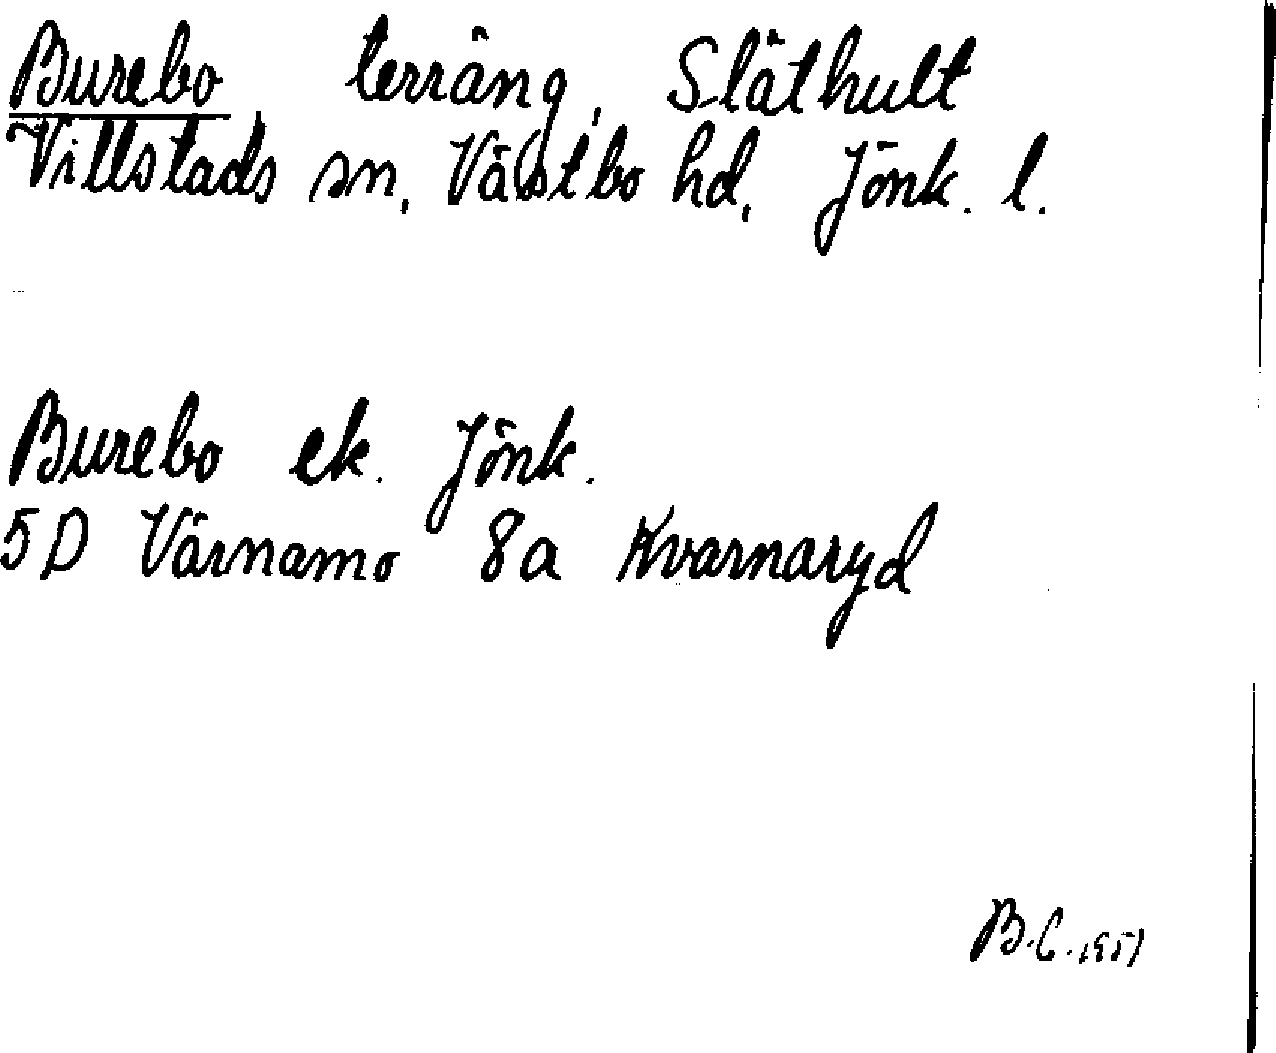 Burebo terräng, Släthult
Villstads sn, Västbo hd, Jönk. l.
Burebo ek. Jönk.
5D Värnamo 8a Kvarnaryd
B.C. 1951